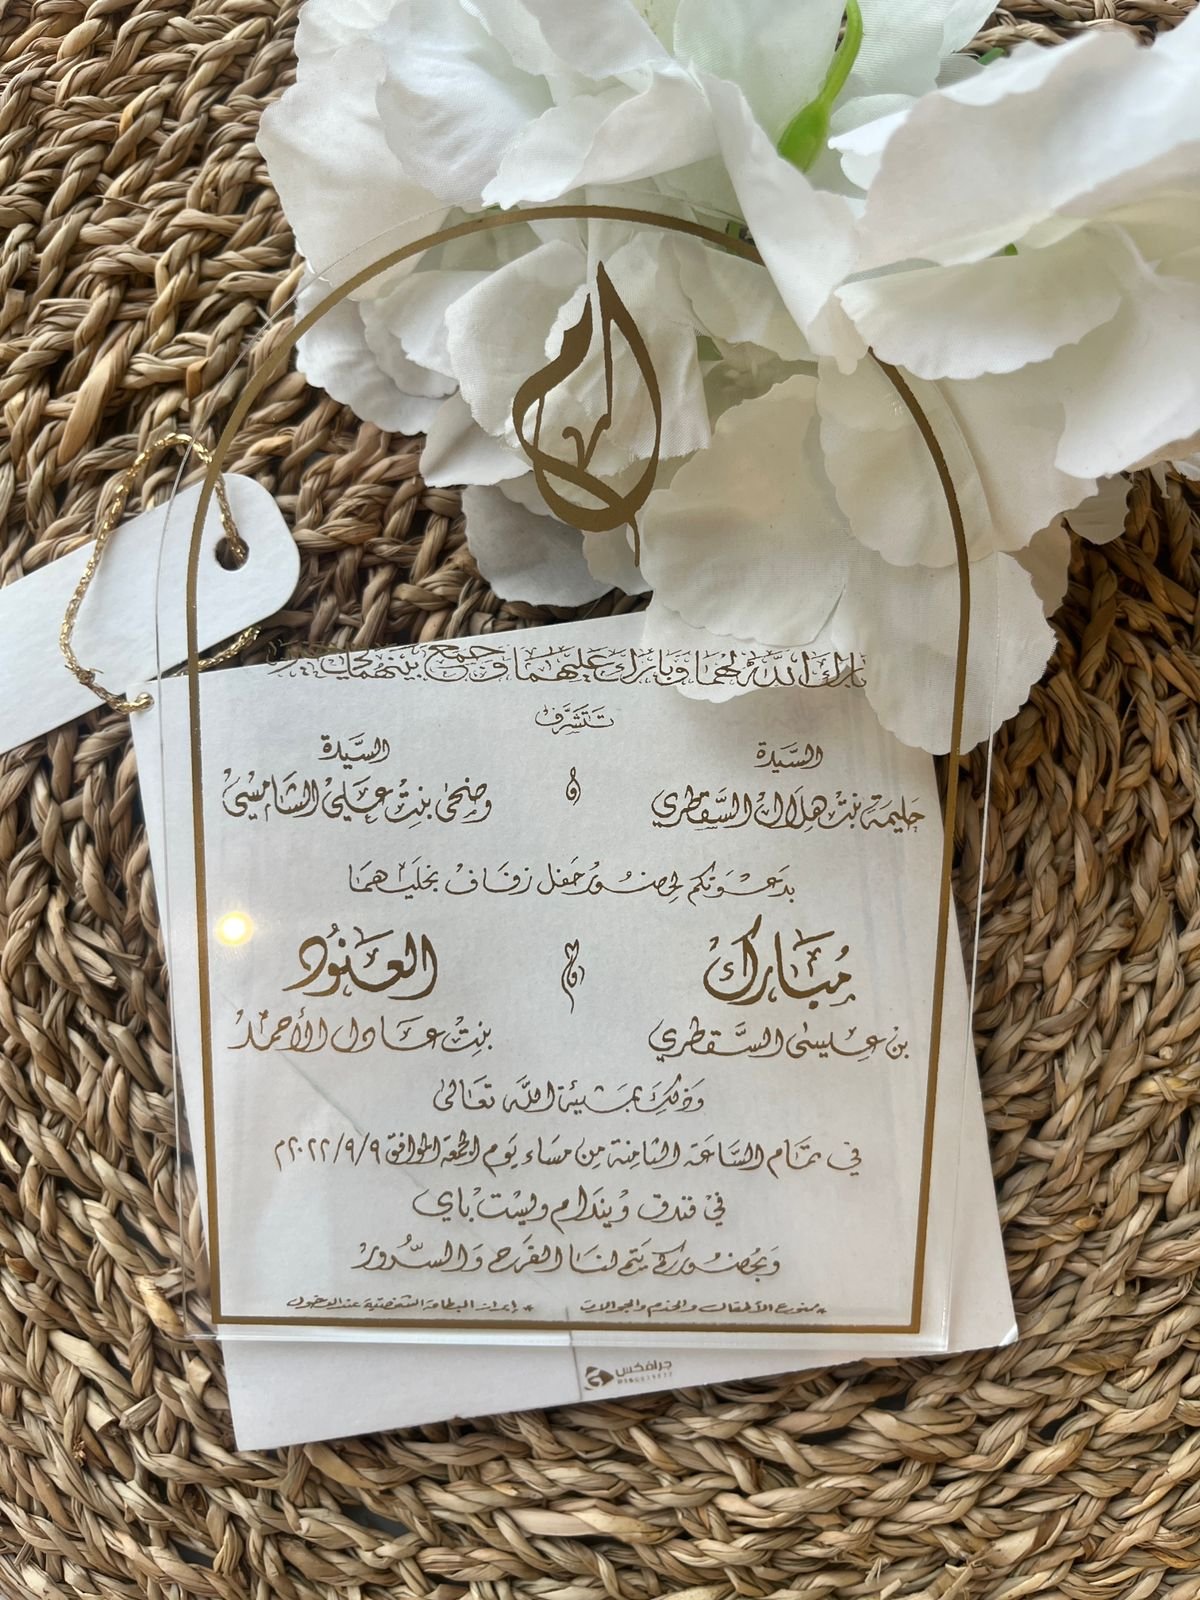 بارك الله لهما وبارك عليهما وجمع بينهما في خير
تتشرف
السيدة
حليمة بنت هلال السقطري
و
السيدة
وضحى بنت علي الشامسي
بدعوتكم لحضور حفل زفاف نجليهما
مبارك
بن عيسى السقطري
العنود
بنت عادل الأحمد
وذلك بمشيئة الله تعالى
في تمام الساعة الثامنة من مساء يوم الجمعة الموافق ٢٠٢٢/٩/٩م
في فندق ويندام ويست باي
وبحضوركم يتم لنا الفرح والسرور
* ممنوع الأطفال والخدم والجوالات
* إبراز البطاقة الشخصية عند الدخول
جرافكس